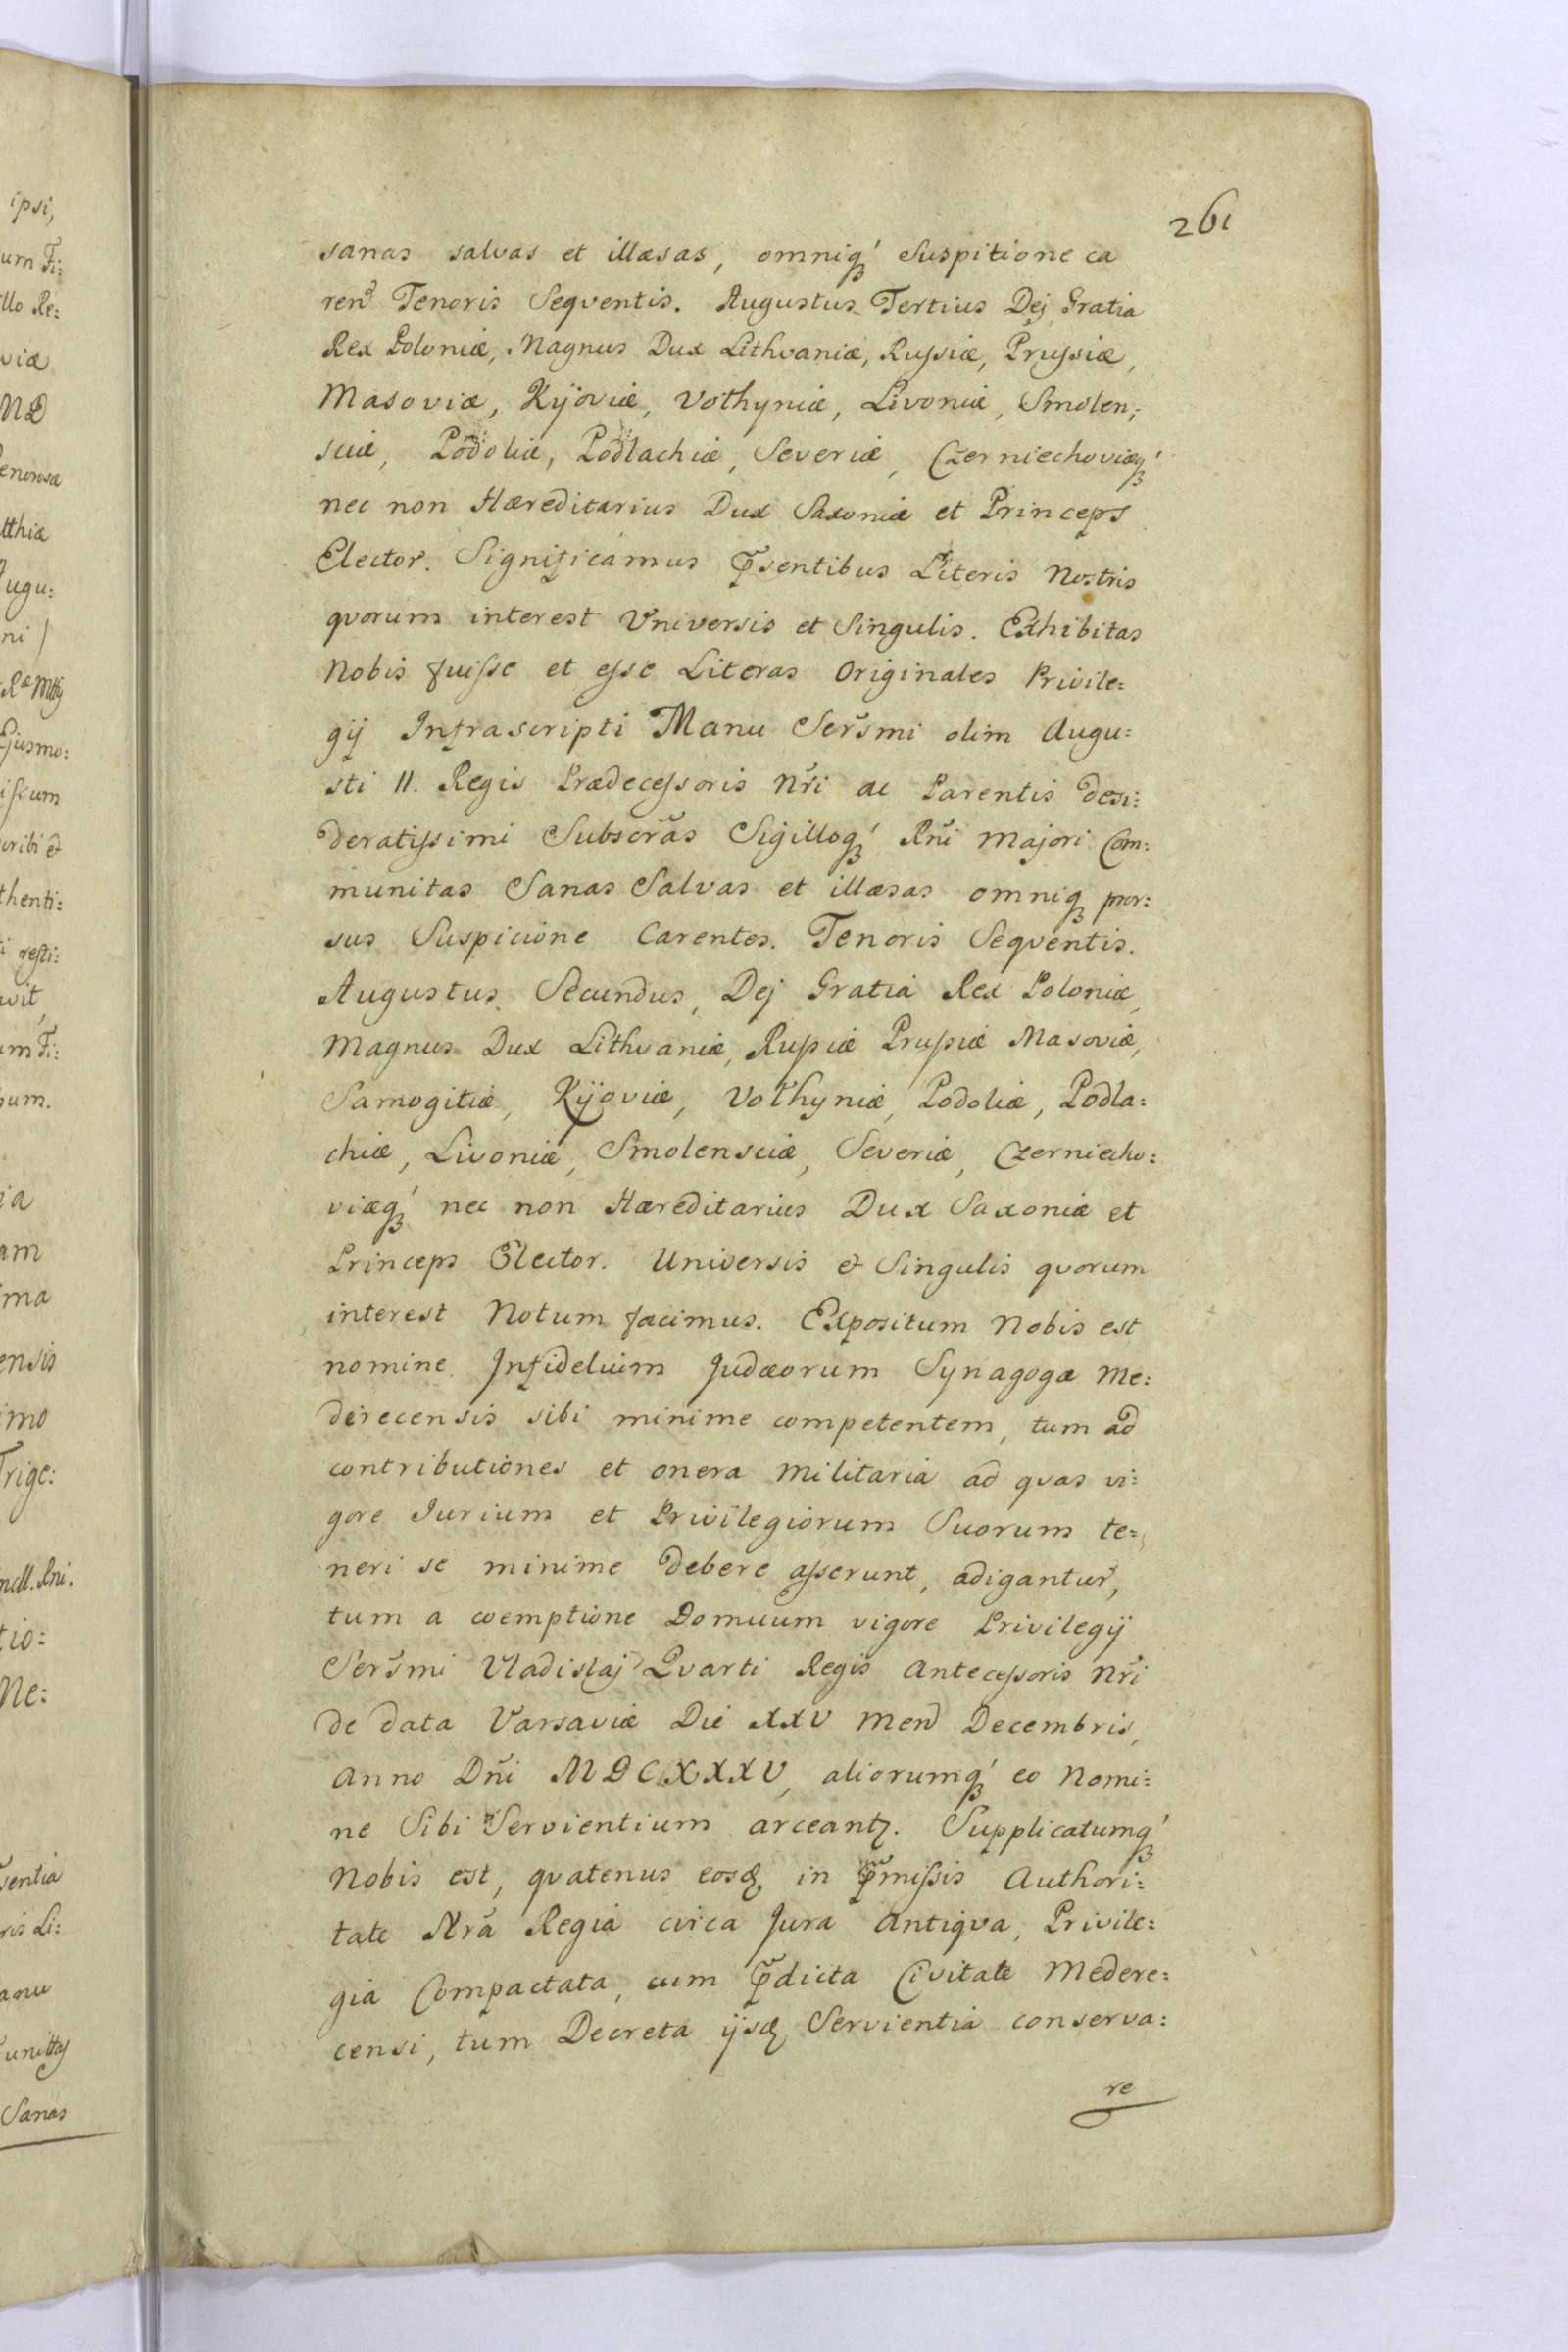 261
sanas salvas et illæsas, omniq́ Suspitione ca
ren͠ Tenoris Seqventis. Augustus Tertius Dej Gratia
Rex Poloniæ, Magnus Dux Lithvaniæ, Russiæ, Prussiæ,
Masoviæ, Kÿoviæ, Vothyniæ, Livoniæ, Smolen;
sciæ, Podoliæ, Podlachiæ, Severiæ, Czerniechoviæq́
nec non Hæreditarius Dux Saxoniæ et Princeps
Elector. Significamus p̃sentibus Literis Nostris
qvorum interest Universis et Singulis. Exhibitas
Nobis fuisse et esse Literas Originales Privile:
gij Infrascripti Manu Ser͠smi olim Augu:
sti II. Regis Prædecessoris Nr͠i ac Parentis desi:
deratissimi Subscr͠as Sigilloq́ Rn͠i Majori Com:
munitas Sanas Salvas et illæsas omniq pror:
sus Suspicione Carentes. Tenoris Seqventis.
Augustus Secundus, Dej Gratia Rex Poloniæ,
Magnus Dux Lithvaniæ, Russiæ Prussiæ Masoviæ,
Samogitiæ, Kÿoviæ, Vothyniæ, Podoliæ, Podla:
chiæ, Livoniæ, Smolensciæ, Severiæ, Czerniecho:
viæq́ nec non Hæreditarius Dux Saxoniæ et
Princeps Elector. Universis & Singulis qvorum
interest Notum facimus. Expositum Nobis est
nomine Infidelium Judæorum Synagogæ Me:
direcensis sibi minime competentem, tum ad
contributiones et onera militaria ad qvas vi:
gore Iurium et Privilegiorum Suorum te:
neri se minime debere asserunt, adigantur,
tum a coemptione Domuum vigore Privilegij
Ser͠smi Vladislaj Qvarti Regis Antecessoris Nr͠i
de data Varsaviæ Die XXV Men͠ Decembris,
Anno Dn͠i MDCXXXV, aliorumq́ eo Nomi:
ne Sibi Servientium arceantꝫ. Supplicatumq́
Nobis est, qvatenus eosd͠ in p̃missis Authori:
tate Nr͠a Regia circa Jura Antiqva, Privile:
gia Compactata, cum p̃dicta Civitate Medere:
censi, tum Decreta ijsd͠ Servientia conserva:
re
ipsi,
um Fi:
llo Re:
viæ
enerosa
tthiæ
Augu:
ni /
Ejusmo:
issum
cribi et
thenti:
i resti:
avit,
um Fi:
sum.
ia
am
ima
ensis
imo
Trige:
ncll. Rni.
tio:
Me:
sentia
ris Li:
anu
Sanas